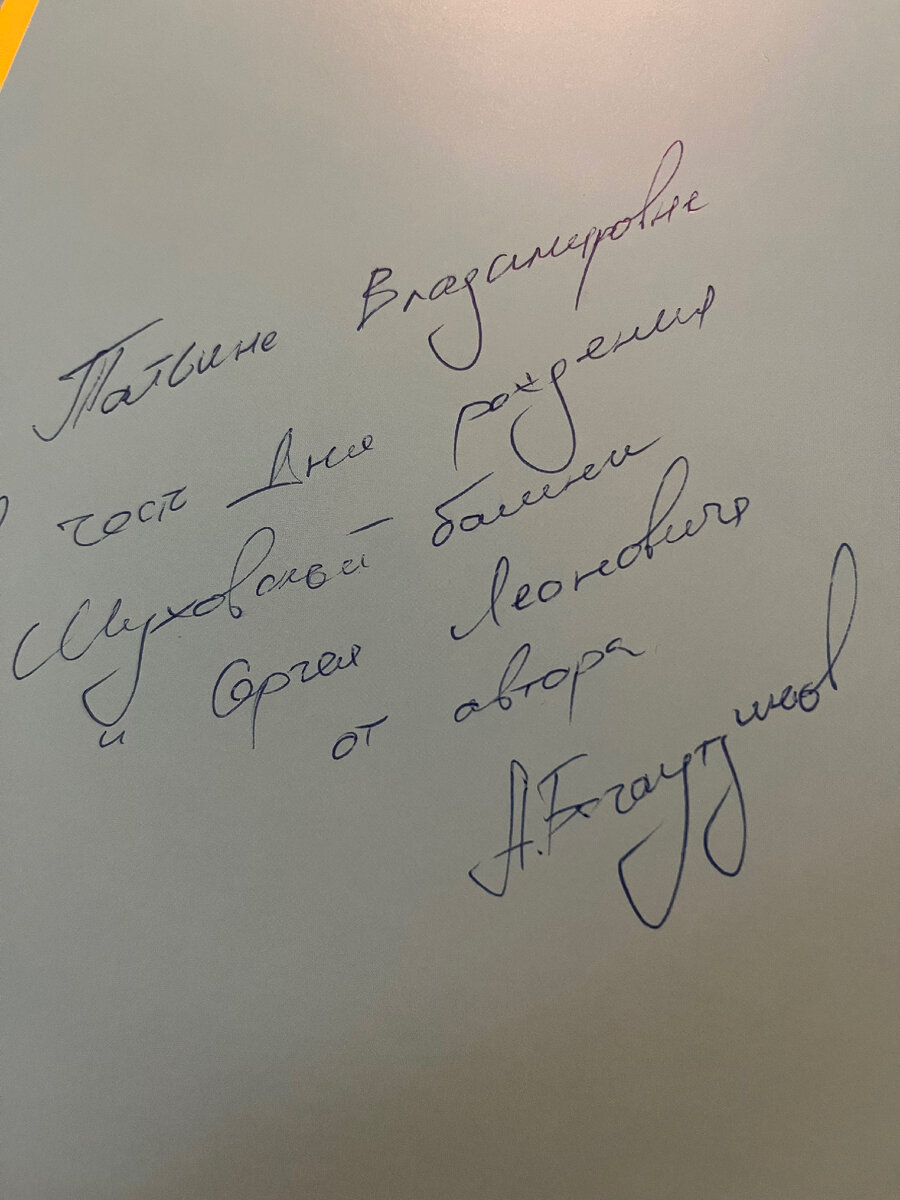 Татьяне Владимировне
В честь Дня рождения
Шуховской башни
и Сергея Леоновича
от автора
А. Богаутдинов